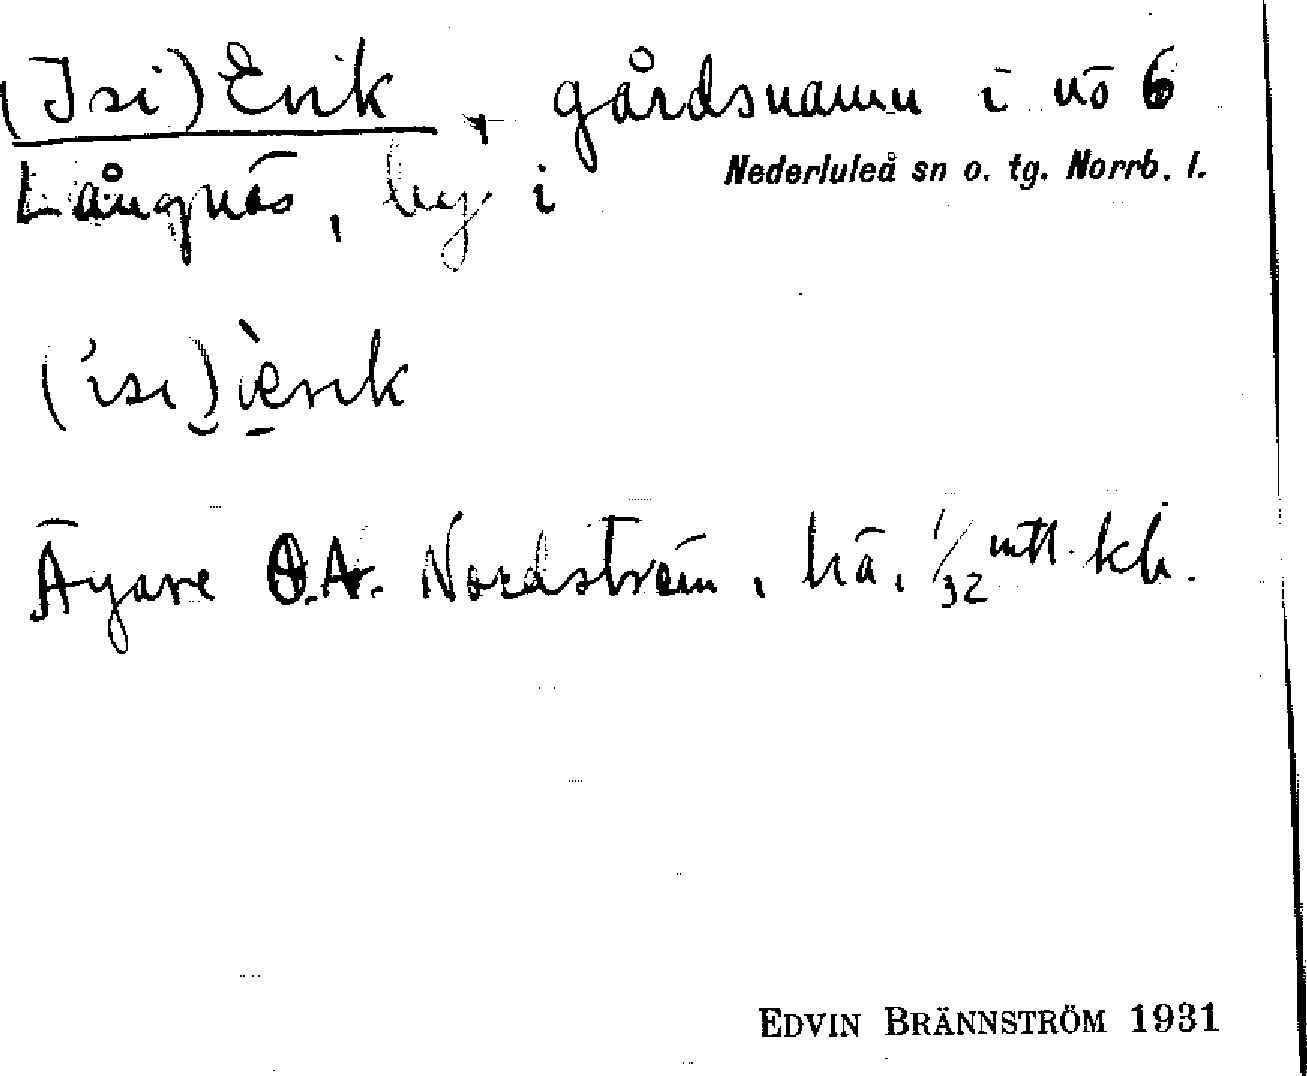 (Isi) Erik, gårdsnamn i nö 6
Långnäs, by i Nederluleå sn o. tg. Norrb. l.
('isi) ìerik
Ägare O.A. Nordström, hä. 1/32 mtl. kh.
EDVIN BRÄNNSTRÖM 1931